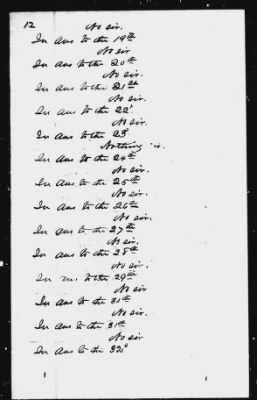 12
No sir.
In ans to the 19th
No sir
In ans to the 20th
No sir.
In ans to the 21st
No sir.
In ans to the 22'
No sir.
In ans to the 23'
Nothing sir.
In ans to the 24th
No sir.
In ans to the 25th
No sir.
In ans to the 26th
No sir.
In ans to the 27th
No sir.
In ans to the 28th
No sir.
In ans to the 29th
No sir
In ans to the 30th
No sir.
In ans to the 31st
No sir
In ans to the 32d